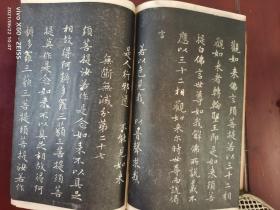 觀如来佛言須菩提若以三十二相
觀如来者轉輪聖王即是如来須菩
提白佛言世尊如我解佛所說義不
應以三十二相觀如来尔時世尊而說偈
言
若以色見我 以音聲求我
是人行邪道 不能見如来
無斷無滅分第二十七
須菩提汝若作是念如来不以具足
相故得阿耨多羅三藐三菩提須菩提
莫作是念如来不以具足相故得阿
耨多羅三藐三菩提須菩提汝
vivo X60 · ZEISS